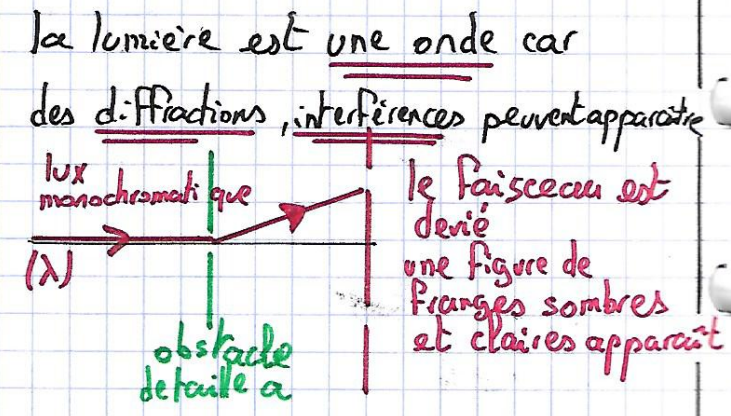 la lumière est une onde car
des diffractions, interférences peuvent apparaître
lux
monochromatique
(λ)
obstacle
de taille a
le faisceau est
devié
une figure de
franges sombres
et claires apparaît